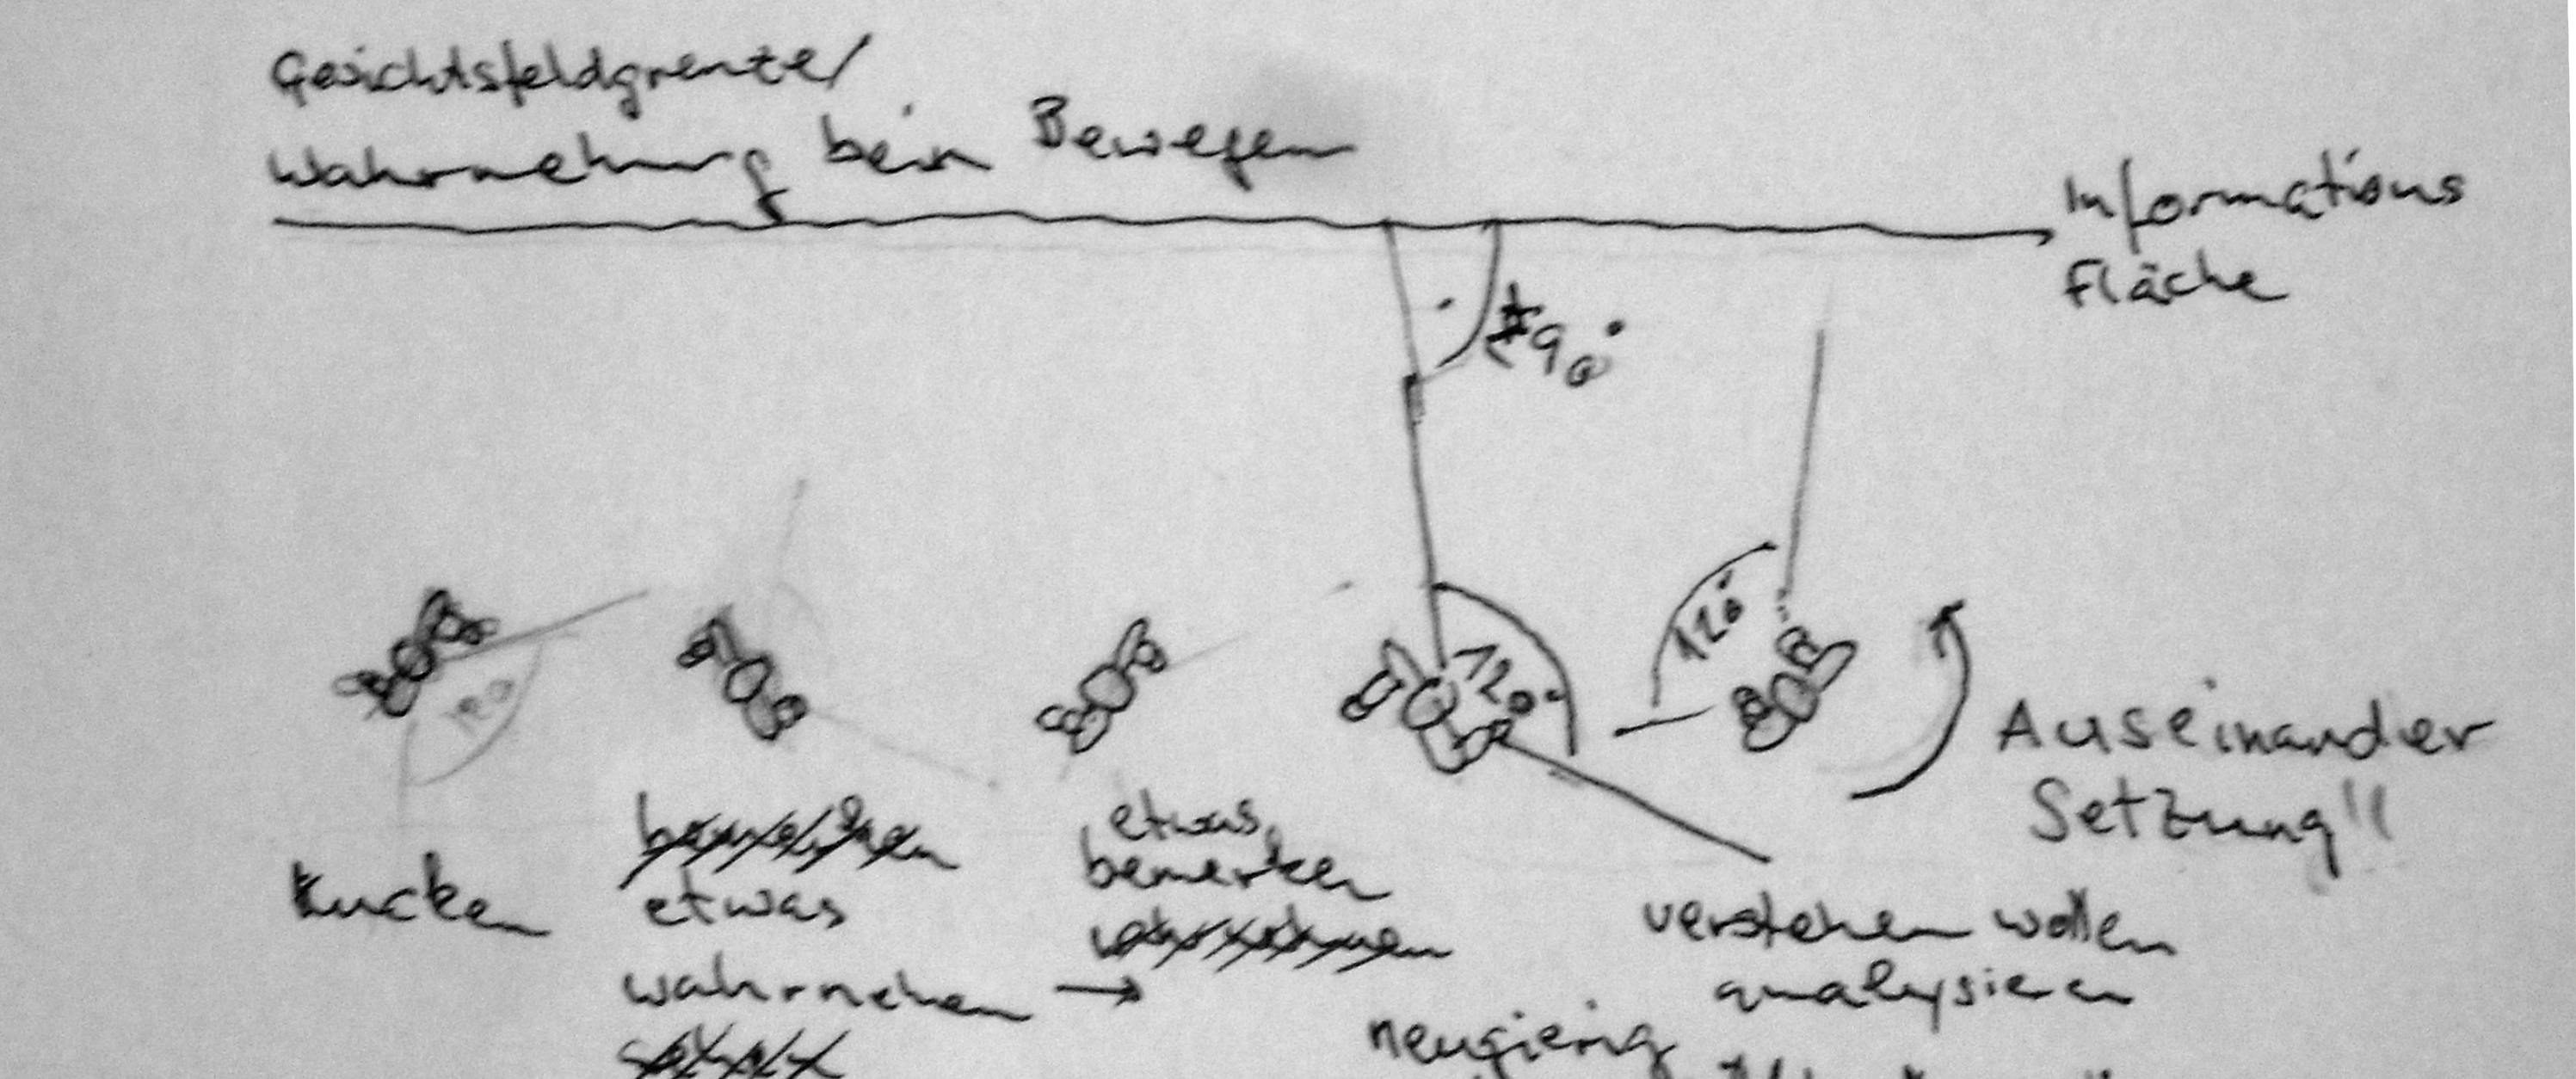 Gesichtsfeldgrenze/
Wahrnehmung beim Bewegen
Informations
Fläche
90°
120
120°
120°
Auseinander
Setzung"
Kucken
etwas
wahrnehen →
etwas
bemerken
verstehen wollen
analysieren
neugierig